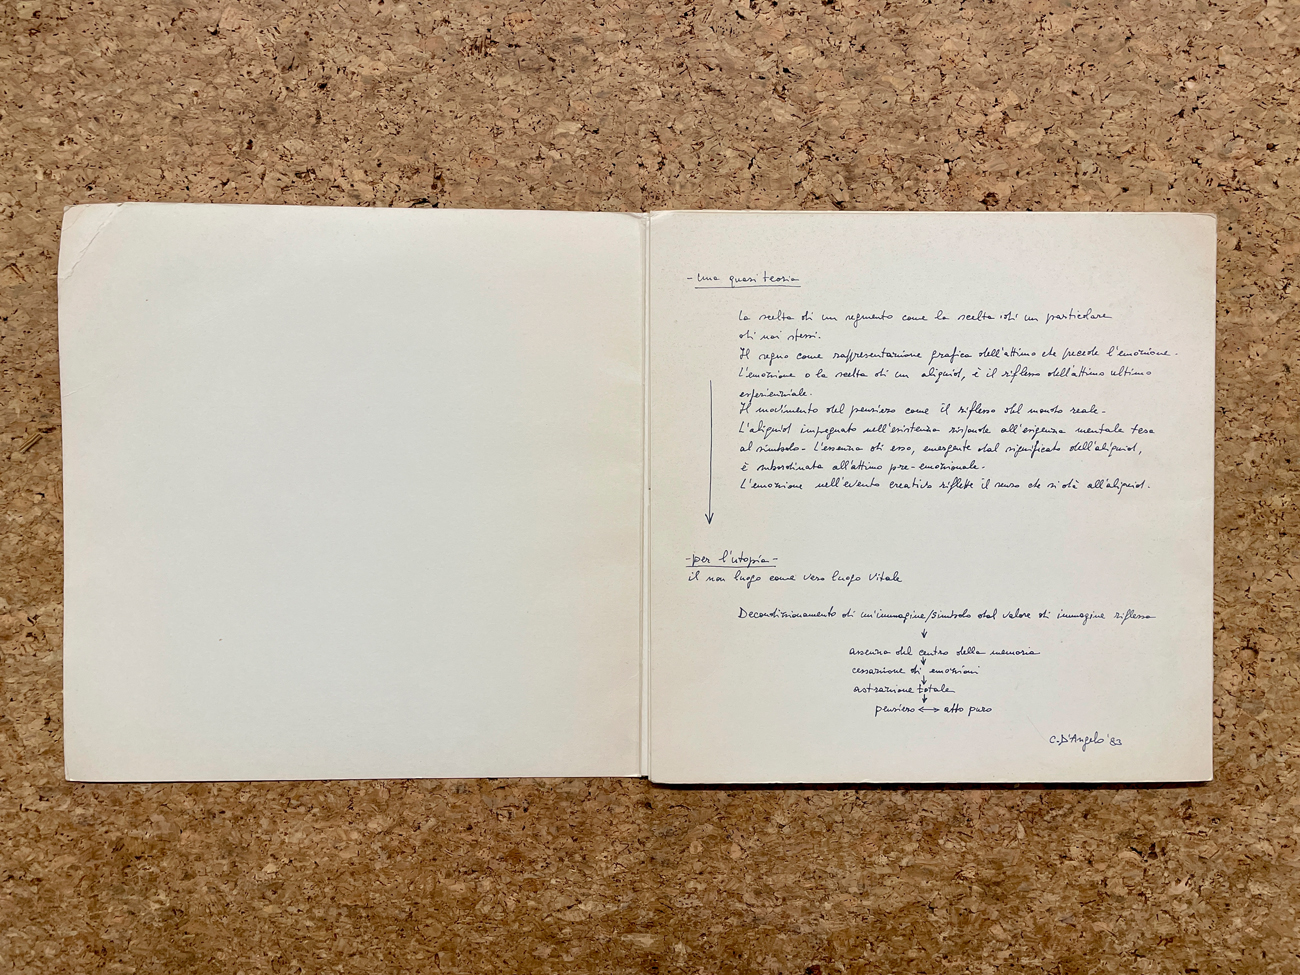 - Una quasi teoria
La scelta di un segmento come la scelta di un particolare
di noi stessi.
Il segno come rappresentazione grafica dell'attimo che precede l'emozione.
L'emozione o la scelta di un aliquid, è il riflesso dell'attimo ultimo
esperienziale.
Il movimento del pensiero come il riflesso del mondo reale-
L'aliquid impegnato nell'esistenza risponde all'esigenza mentale tesa
al simbolo- L'essenza di esso, emergente dal significato dell'aliquid,
è subordinata all'attimo pre-emozionale.
L'emozione nell'evento creativo riflette il senso che si dà all'aliquid.
- per l'utopia -
il non luogo come vero luogo vitale
Decondizionamento di un'immagine/simbolo dal valore di immagine riflessa
↓
assenza del centro della memoria
↓
cessazione di emozioni
↓
astrazione totale
↓
pensiero ↔ atto puro
C. D'Angelo '83